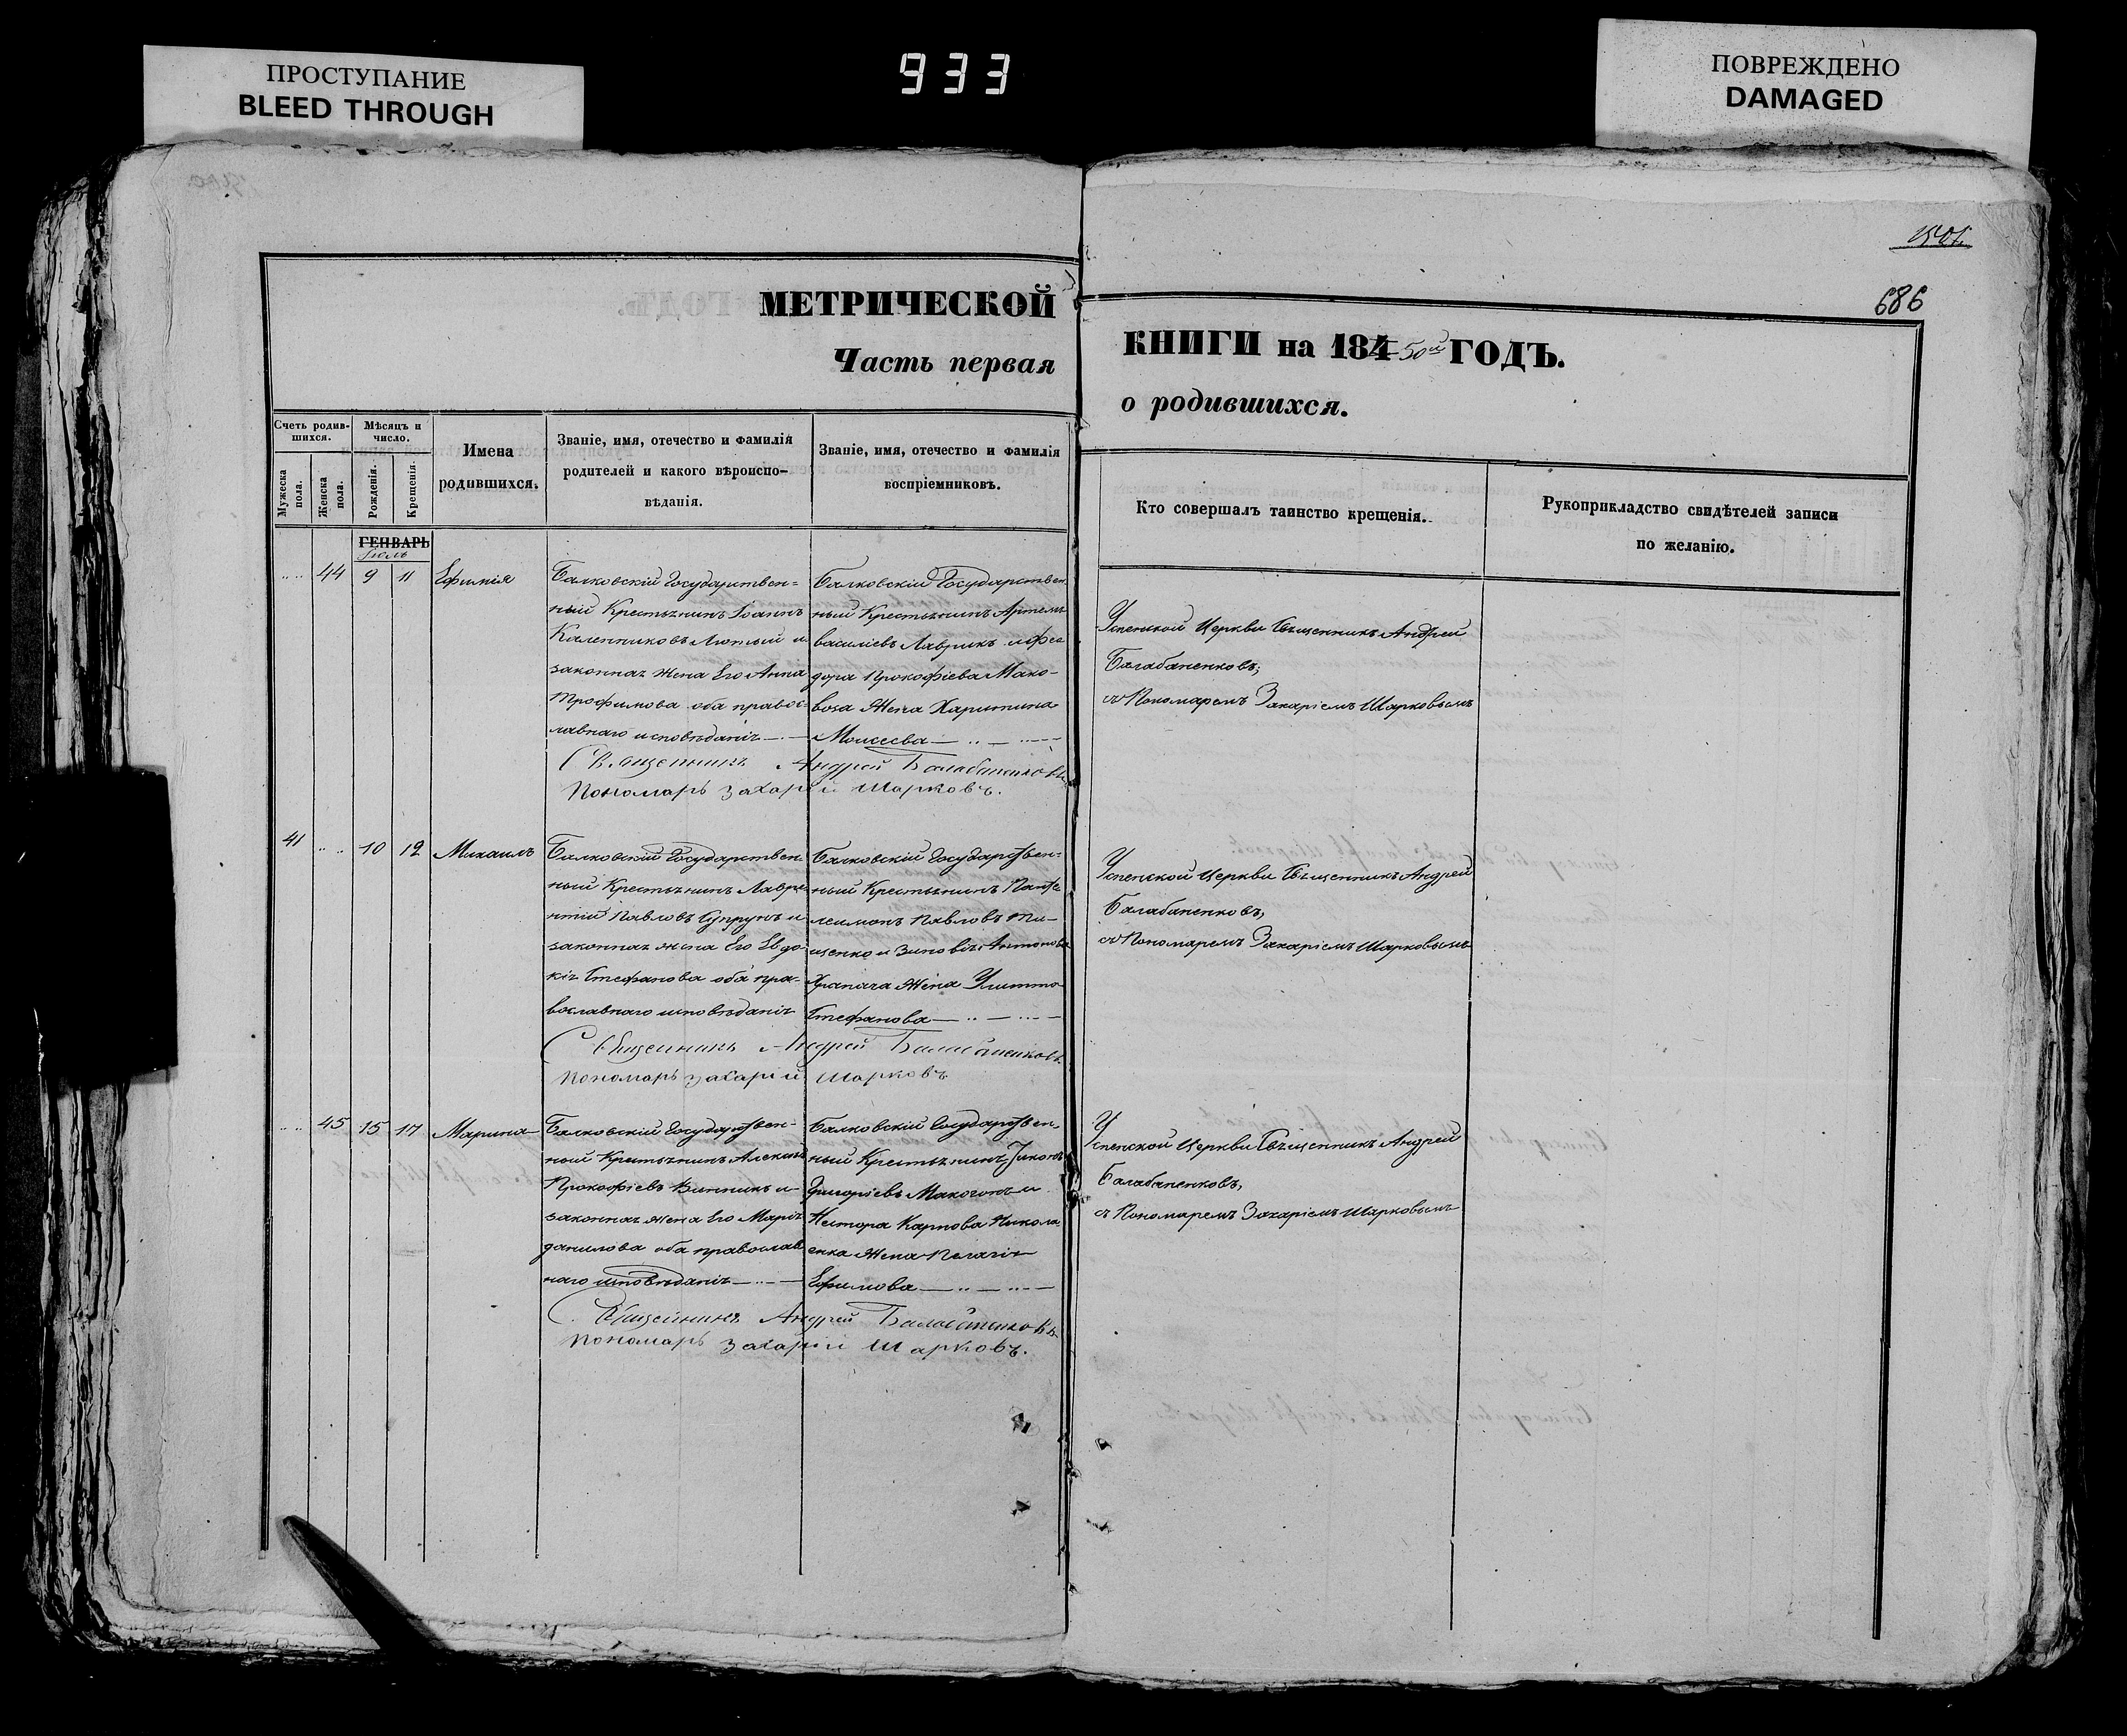 ПРОСТУПАНИЕ
BLEED THROUGH
933
ПОВРЕЖДЕНО
DAMAGED
1501.
686
МЕТРИЧЕСКОЙ
Часть первая
КНИГИ на 184 50й ГОДЪ.
о родившихся.
Счетъ родив-
шихся.
Мужеска
пола.
Женска
пола.
Мѣсяцъ и
число.
Рожденія.
Крещенія.
Имена
родившихся.
Званіе, имя, отечество и фамилія
родителей и какого вѣроиспо-
вѣданія.
Званіе, имя, отечество и фамилія
воспріемниковъ.
Кто совершалъ таинство крещенія.
Рукоприкладство свидѣтелей записи
по желанію.
ГЕНВАРЬ
Іюль
44 9 11 Ефимія
Балковскій Государствен=
ный Крестьянинъ Іоаннъ
Каленниковъ Лютый и
законная жена Его Анна
Трофимова оба правос-
лавнаго исповѣданія
Балковскій Государствен
ный Крестьянинъ Артемъ
Василіевъ Лаврикъ и Фео
дора Прокофіева Мако-
воза Жена Харитина
Моисеева
Священникъ Андрей Балабаненковъ
Пономарь Захарій Шарковъ.
Успенской Церкви Священникъ Андрей
Балабаненковъ;
съ Пономаремъ Захаріемъ Шарковымъ
41 10 12 Михаилъ
Балковскій Государствен-
ный Крестьянинъ Лавре
нтій Павловъ Супрунъ и
законная жена Его Евдо-
кія Стефанова оба пра-
вославнаго исповѣданія
Балковскій Государствен-
ный Крестьянинъ Панте
леимонъ Павловъ Ти-
щенко и Зиновія Антонова
Храпача Жена Улитта
Стефанова
Священникъ Андрей Балабаненковъ
Пономарь Захарій Шарковъ
Успенской Церкви Священникъ Андрей
Балабаненковъ,
съ Пономаремъ Захаріемъ Шарковымъ
45 15 17 Марина
Балковскій Государствен-
ный Крестьянинъ Алексій
Прокофіевъ Винникъ и
законная жена Его Марія
Данилова оба православ
наго исповѣданія
Балковскій Государствен
ный Крестьянинъ
Григоріевъ Макогонъ и
Нестора Карпова Никола
енка Жена Пелагія
Ефимова
Священникъ Андрей Балабаненковъ
Пономарь Захарій Шарковъ.
Успенской Церкви Священникъ Андрей
Балабаненковъ,
съ Пономаремъ Захаріемъ Шарковымъ